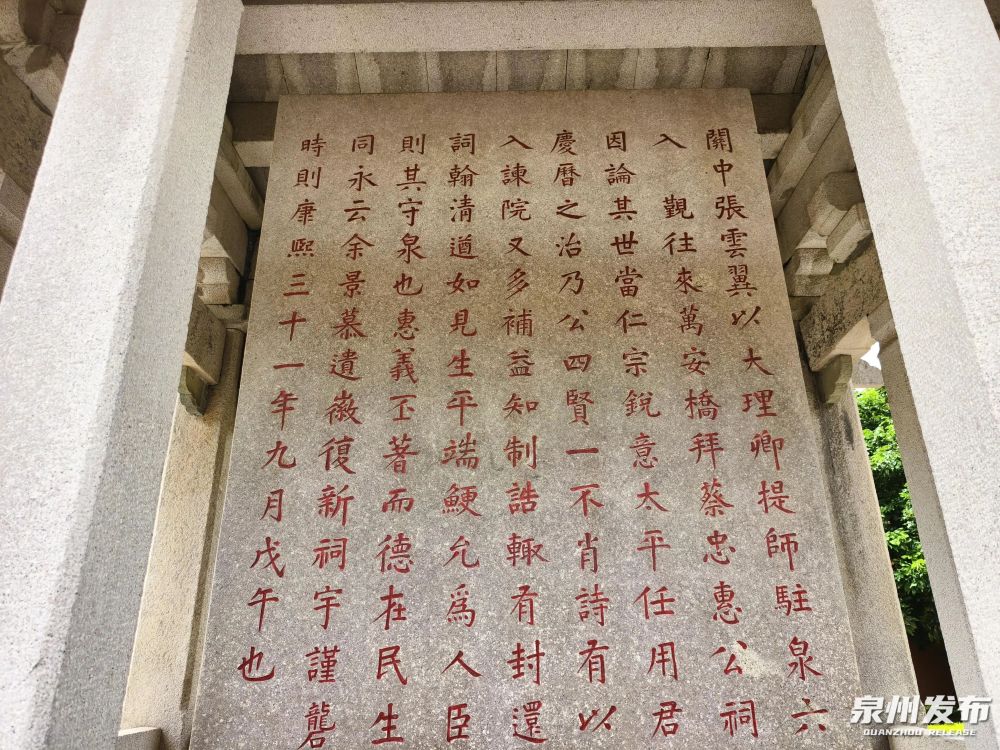 關中張雲翼以大理卿提師駐泉六
入 覲往來萬安橋拜蔡忠惠公祠
因論其世當仁宗銳意太平任用君
慶曆之治乃公四賢一不肖詩有以
入諫院又多補益知制誥輙有封還
詞翰清遒如見生平端鯁允爲人臣
則其守泉也惠義丕著而德在民生
同永云余景慕遺徽復新祠宇謹礱
時則康熙三十一年九月戊午也
泉州发布
QUANZHOU RELEASE